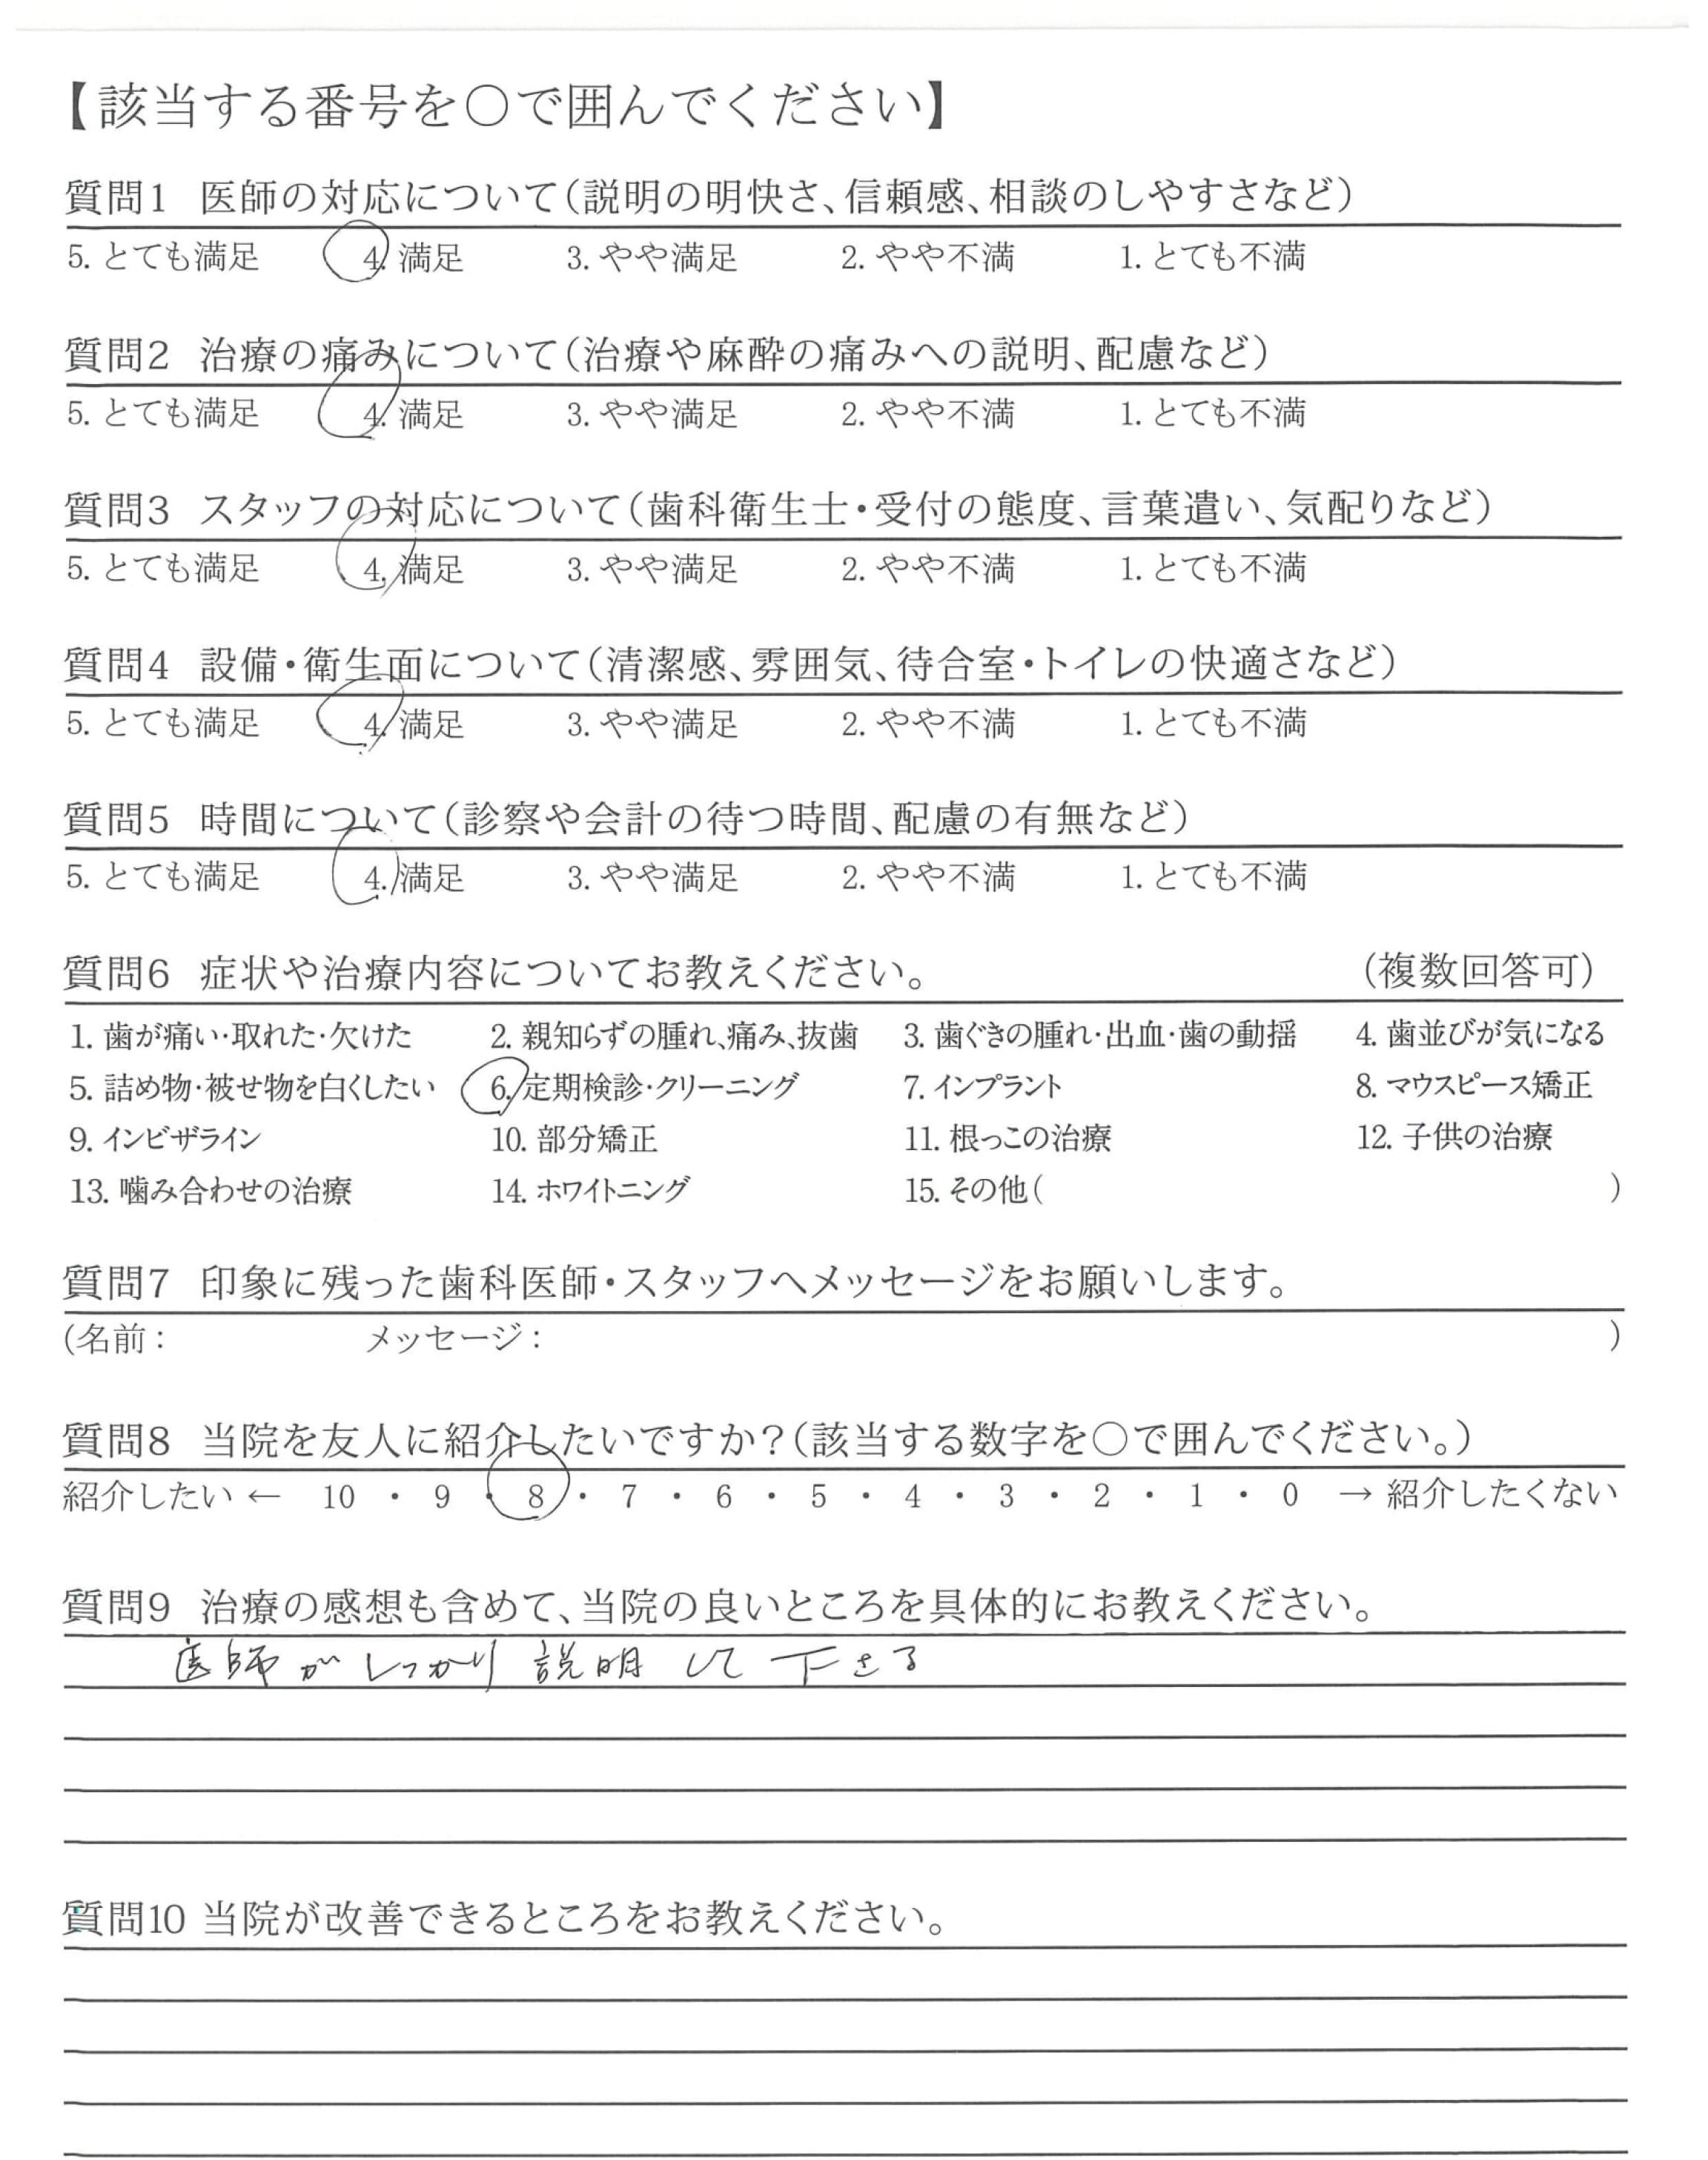 【該当する番号を○で囲んでください】
質問1 医師の対応について（説明の明快さ、信頼感、相談のしやすさなど）
5. とても満足 4. 満足 3. やや満足 2. やや不満 1. とても不満
質問2 治療の痛みについて（治療や麻酔の痛みへの説明、配慮など）
5. とても満足 4. 満足 3. やや満足 2. やや不満 1. とても不満
質問3 スタッフの対応について（歯科衛生士・受付の態度、言葉遣い、気配りなど）
5. とても満足 4. 満足 3. やや満足 2. やや不満 1. とても不満
質問4 設備・衛生面について（清潔感、雰囲気、待合室・トイレの快適さなど）
5. とても満足 4. 満足 3. やや満足 2. やや不満 1. とても不満
質問5 時間について（診察や会計の待つ時間、配慮の有無など）
5. とても満足 4. 満足 3. やや満足 2. やや不満 1. とても不満
質問6 症状や治療内容についてお教えください。 （複数回答可）
1. 歯が痛い・取れた・欠けた 2. 親知らずの腫れ、痛み、抜歯 3. 歯ぐきの腫れ・出血・歯の動揺 4. 歯並びが気になる
5. 詰め物・被せ物を白くしたい 6. 定期検診・クリーニング 7. インプラント 8. マウスピース矯正
9. インビザライン 10. 部分矯正 11. 根っこの治療 12. 子供の治療
13. 噛み合わせの治療 14. ホワイトニング 15. その他（ ）
質問7 印象に残った歯科医師・スタッフへメッセージをお願いします。
（名前： メッセージ： ）
質問8 当院を友人に紹介したいですか？（該当する数字を○で囲んでください。）
紹介したい ← 10 ・ 9 ・ 8 ・ 7 ・ 6 ・ 5 ・ 4 ・ 3 ・ 2 ・ 1 ・ 0 → 紹介したくない
質問9 治療の感想も含めて、当院の良いところを具体的にお教えください。
医師がしっかり説明して下さる
質問10 当院が改善できるところをお教えください。